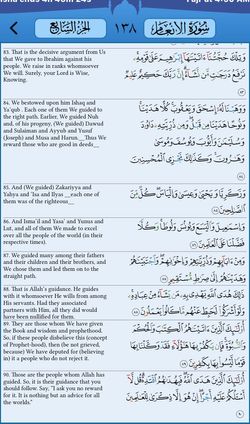 سورة الانعام
١٣٨
الجزء السابع
83. That is the decisive argument from Us
that We gave to Ibrahim against his
people. We raise in ranks whomsoever
We will. Surely, your Lord is Wise,
Knowing.
وَتِلْكَ حُجَّتُنَا آتَيْنَاهَا إِبْرَاهِيمَ عَلَى قَوْمِهِ
نَرْفَعُ دَرَجَاتٍ مَن نَّشَاءُ إِنَّ رَبَّكَ حَكِيمٌ عَلِيمٌ
84. We bestowed upon him Ishaq and
Ya'qub . Each one of them We guided to
the right path. Earlier, We guided Nuh
and, of his progeny, (We guided) Dawud
and Sulaiman and Ayyub and Yusuf
(Joseph) and Musa and Harun._ Thus We
reward those who are good in deeds__
وَوَهَبْنَا لَهُ إِسْحَقَ وَيَعْقُوبَ كُلًّا هَدَيْنَا
وَنُوحًا هَدَيْنَا مِن قَبْلُ وَمِن ذُرِّيَّتِهِ
دَاوُودَ وَسُلَيْمَانَ وَأَيُّوبَ وَيُوسُفَ وَمُوسَى
وَهَارُونَ وَكَذَلِكَ نَجْزِي الْمُحْسِنِينَ
85. And (We guided) Zakariyya and
Yahya and 'Isa and Ilyas __ each one of
them was of the righteous__
وَزَكَرِيَّا وَيَحْيَى وَعِيسَى وَإِلْيَاسَ كُلٌّ مِّنَ
الصَّالِحِينَ
86. and Isma'il and Yasa' and Yunus and
Lut, and all of them We made to excel
over all the people of the world (in their
respective times).
وَإِسْمَاعِيلَ وَالْيَسَعَ وَيُونُسَ وَلُوطًا وَكُلًّا
فَضَّلْنَا عَلَى الْعَالَمِينَ
87. We guided many among their fathers
and their children and their brothers, and
We chose them and led them on to the
straight path.
وَمِنْ آبَائِهِمْ وَذُرِّيَّاتِهِمْ وَإِخْوَانِهِمْ وَاجْتَبَيْنَاهُمْ
وَهَدَيْنَاهُمْ إِلَى صِرَاطٍ مُّسْتَقِيمٍ
88. That is Allah's guidance. He guides
with it whomsoever He wills from among
His servants. Had they associated
partners with Him, all they did would
have been nullified for them.
ذَلِكَ هُدَى اللَّهِ يَهْدِي بِهِ مَن يَشَاءُ مِنْ عِبَادِهِ
وَلَوْ أَشْرَكُوا لَحَبِطَ عَنْهُم مَّا كَانُوا يَعْمَلُونَ
89. They are those whom We have given
the Book and wisdom and prophethood.
So, if these people disbelieve this (concept
of Prophet-hood), then (be not grieved,
because) We have deputed for (believing
in) it a people who do not reject it.
أُولَئِكَ الَّذِينَ آتَيْنَاهُمُ الْكِتَابَ وَالْحُكْمَ
وَالنُّبُوَّةَ فَإِن يَكْفُرْ بِهَا هَؤُلَاءِ فَقَدْ وَكَّلْنَا بِهَا
قَوْمًا لَّيْسُوا بِهَا بِكَافِرِينَ
90. Those are the people whom Allah has
guided. So, it is their guidance that you
should follow. Say, "I ask you no reward
for it. It is nothing but an advice for all
the worlds."
أُولَئِكَ الَّذِينَ هَدَى اللَّهُ فَبِهُدَاهُمُ اقْتَدِهْ قُل لَّا
أَسْأَلُكُمْ عَلَيْهِ أَجْرًا إِنْ هُوَ إِلَّا ذِكْرَى لِلْعَالَمِينَ